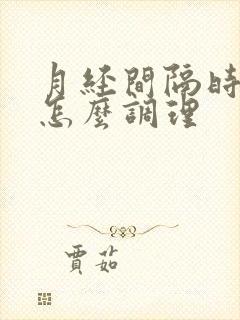 月经間隔時
怎麼調理
賈茹